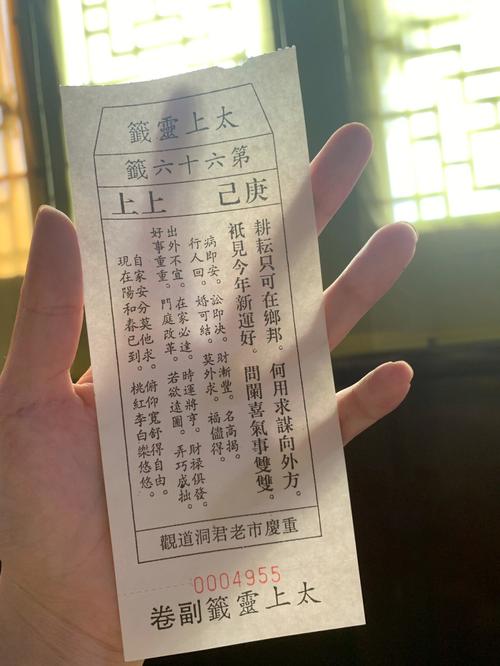 太上靈籤
第六十六籤
庚己 上上
耕耘只可在鄉邦。何用求謀向外方。
祇見今年新運好。問闌喜氣事雙雙。
病即安。訟即決。財漸豐。名高揭。
行人回。婚可結。莫外求。福儘得。
出外不宜。在家必達。時運將亨。財祿俱發。
好事重重。門庭改革。若欲遠圖。弄巧成拙。
自家安分莫他求。俯仰寬舒得自由。
現在陽和春已到。桃紅李白樂悠悠。
重慶市老君洞道觀
0004955
太上靈籤副卷